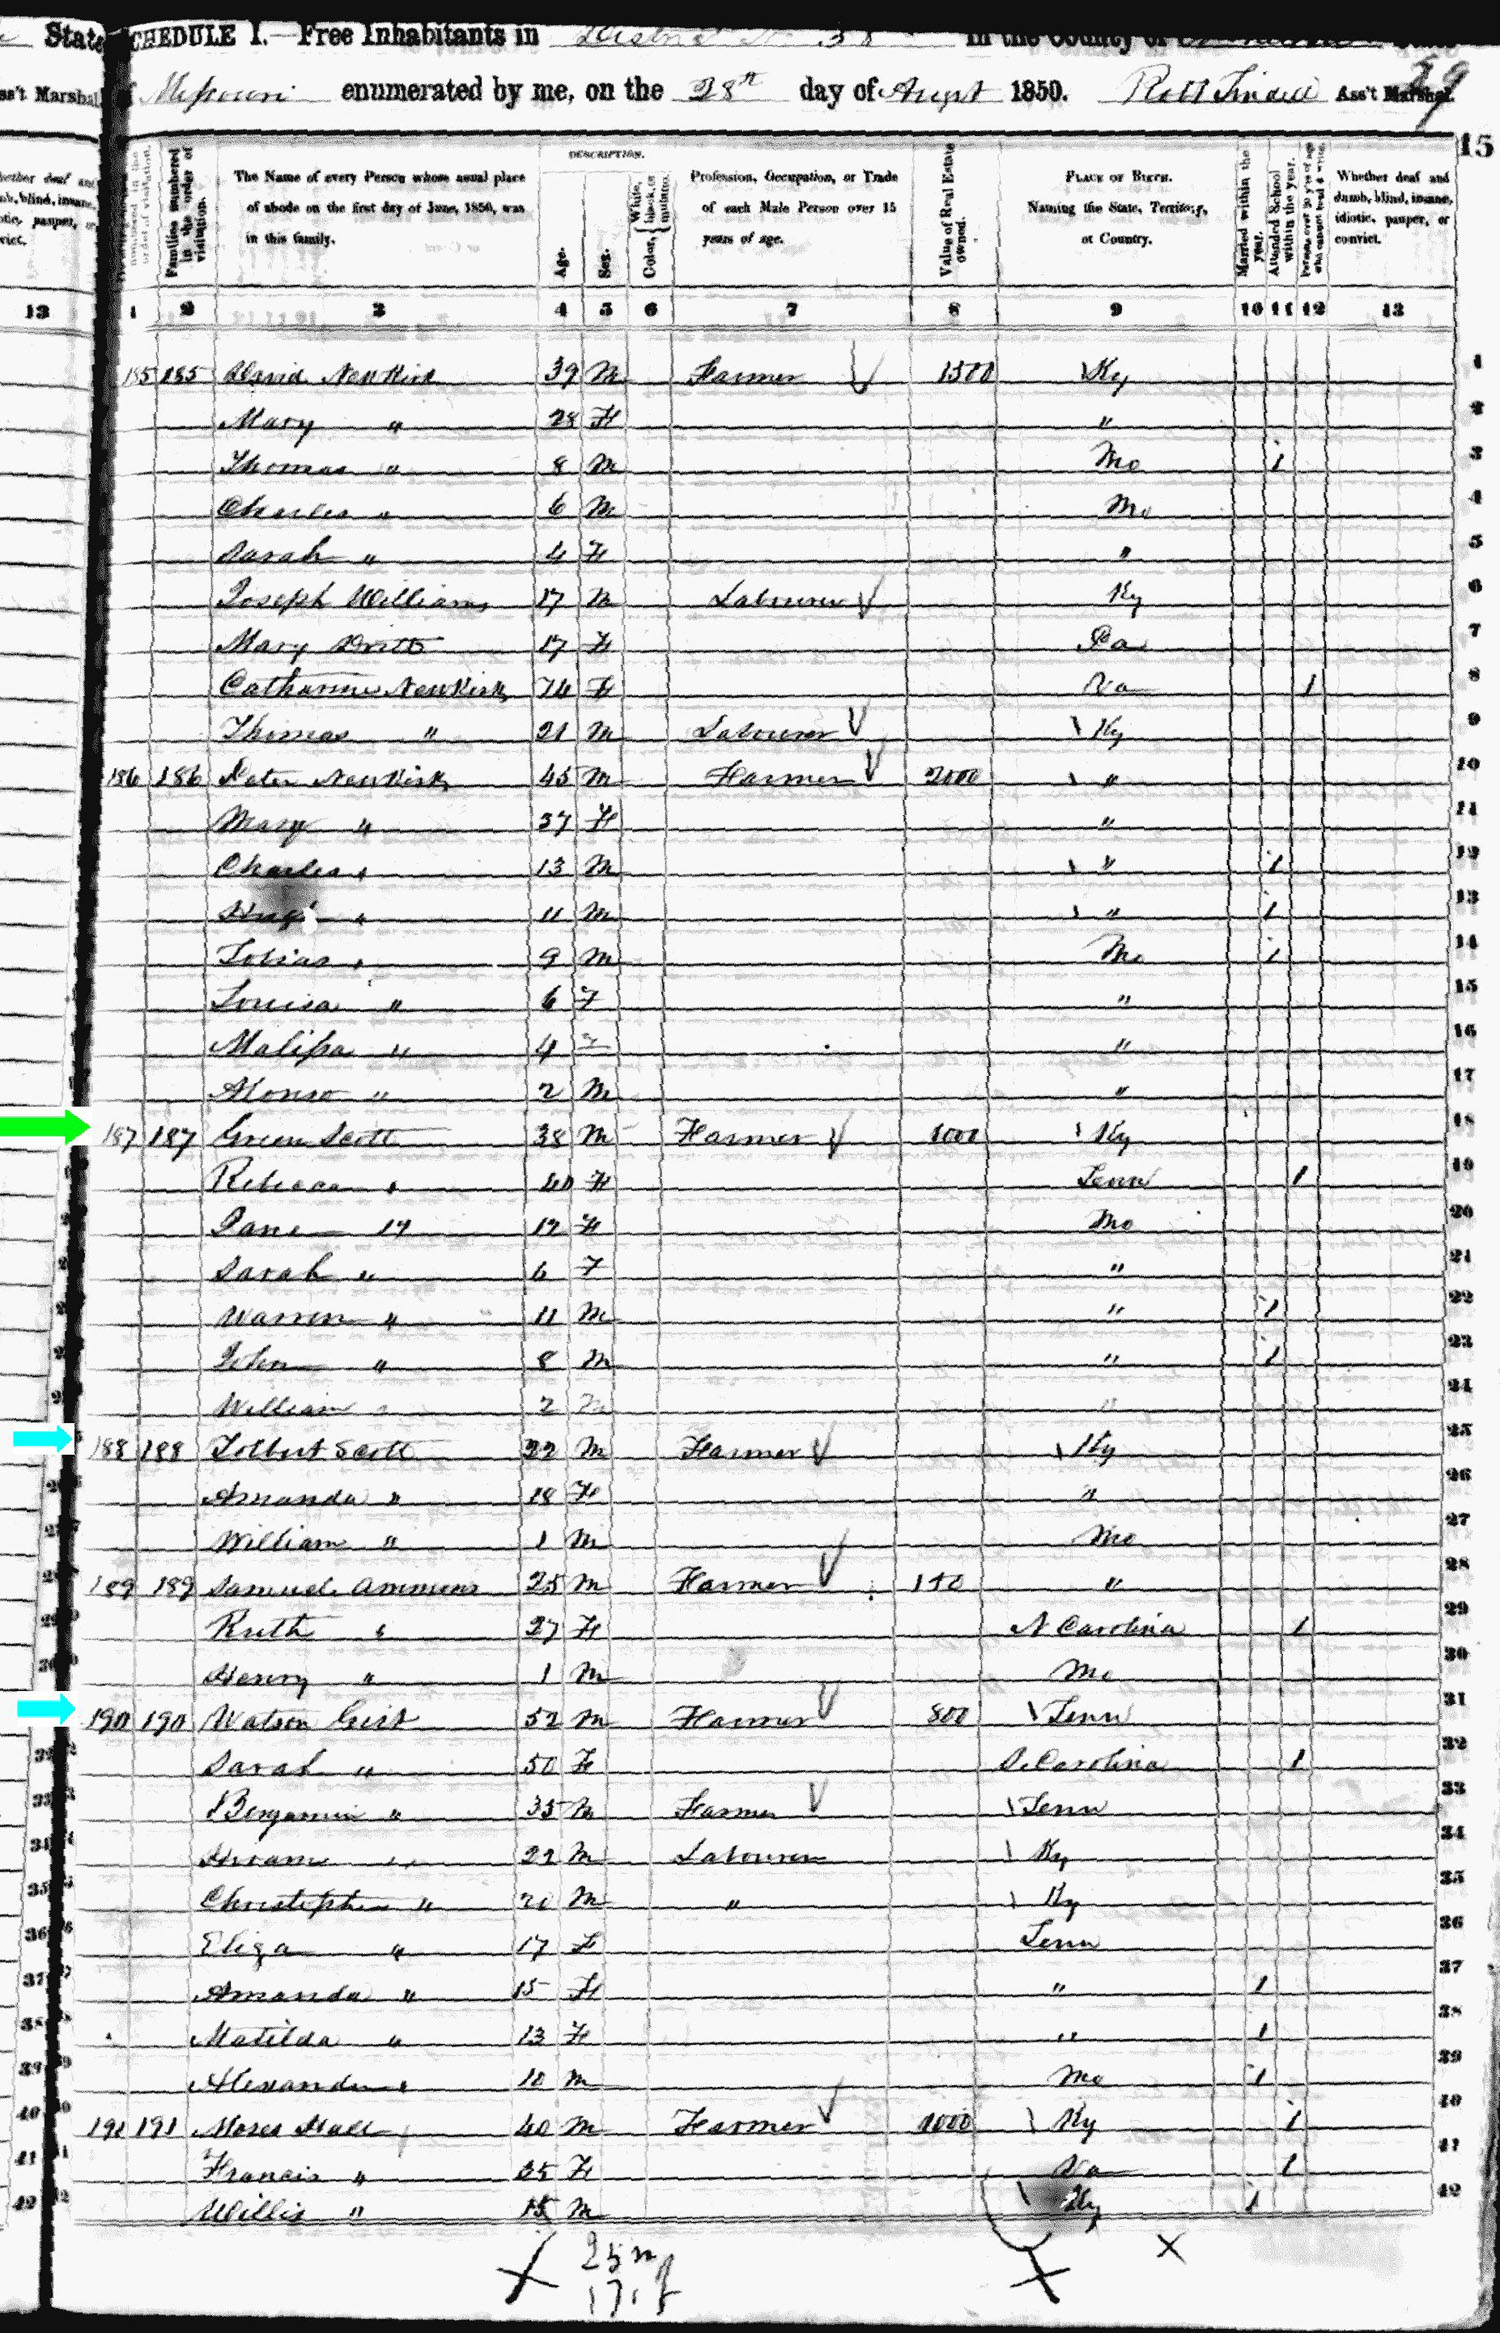 State SCHEDULE I.—Free Inhabitants in District No 38 in the County of State
ss't Marshal of Missouri enumerated by me, on the 28th day of August 1850. Robt Ass't Marshal.
59
15
DESCRIPTION.
Families numbered in the order of visitation.
The Name of every Person whose usual place of abode on the first day of June, 1850, was in this family.
Age.
Sex.
Color, { White, black, or mulatto.
Profession, Occupation, or Trade of each Male Person over 15 years of age.
Value of Real Estate owned.
PLACE OF BIRTH. Naming the State, Territory, or Country.
Married within the year.
Attended School within the year.
Persons over 20 y'rs of age who cannot read & write.
Whether deaf and dumb, blind, insane, idiotic, pauper, or convict.
13 1 2 3 4 5 6 7 8 9 10 11 12 13
185 185 David NewKirk 39 M Farmer 1500 Ky 1
Mary " 28 F " 2
Thomas " 8 M Mo 1 3
Charles " 6 M Mo 4
Sarah " 4 F " 5
Joseph Williams 17 M Labourer Ky 6
Mary 17 F Pa 7
Catharine NewKirk 74 F Va 1 8
Thomas " 21 M Labourer Ky 9
186 186 Peter NewKirk 45 M Farmer 2000 " 10
Mary " 37 F " 11
Charles " 13 M " 1 12
Hugh " 11 M " 1 13
Tobias " 9 M Mo 1 14
Louisa " 6 F " 15
Malissa " 4 F " 16
Alonso " 2 M " 17
187 187 Green Scott 38 M Farmer 1000 Ky 18
Rebecca " 40 F Tenn 1 19
Jane " 12 F Mo 20
Sarah " 6 F " 21
Warren " 11 M " 1 22
John " 8 M " 1 23
William " 2 M " 24
188 188 Tolbert Scott 22 M Farmer Ky 25
Amanda " 18 F " 26
William " 1 M Mo 27
189 189 Samuel Ammons 25 M Farmer 140 " 28
Ruth " 27 F N Carolina 1 29
Henry " 1 M Mo 30
190 190 Watson Gist 52 M Farmer 800 Tenn 31
Sarah " 50 F S. Carolina 1 32
Benjamin " 35 M Farmer Tenn 33
Hiram " 22 M Labourer Ky 34
Christopher " 20 M " Ky 35
Eliza " 17 F Tenn 36
Amanda " 15 F " 1 37
Matilda " 13 F " 1 38
Alexander " 10 M Mo 1 39
191 191 Moses Hall 40 M Farmer 1000 Ky 1 40
Francis " 35 F Va 1 41
Willis " 15 M Ky 1 42
25 m
17 f